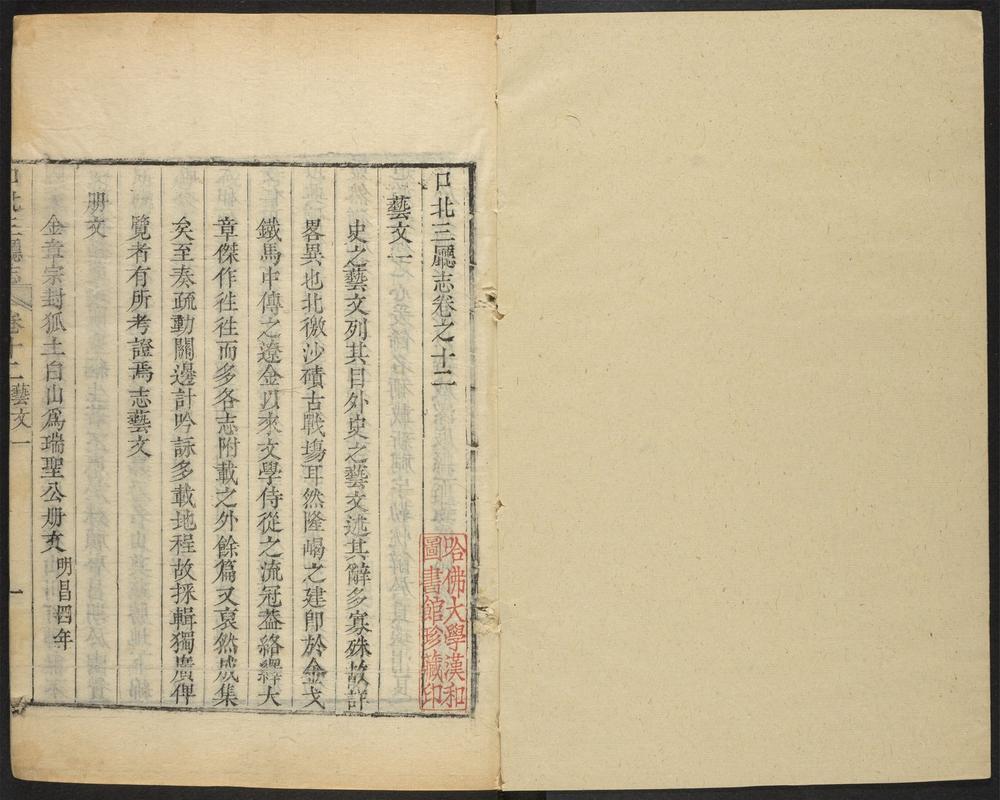 口北三廳志卷之十二
藝文一
史之藝文列其目外史之藝文述其辭多寡殊故詳
畧異也北徼沙磧古戰塲耳然隆嵑之建卽於金戈
鐵馬中傳之遼金以來文學侍從之流冠葢絡繹大
章傑作徃徃而多各志附載之外餘篇又裒然成集
矣至奏疏動關邊計吟詠多載地程故採輯獨廣俾
覽者有所考證焉志藝文
册文
金章宗封狐土白山爲瑞聖公册文明昌四年
口北三廳志
卷十二藝文一
一
哈佛大學漢和
圖書館珍藏印